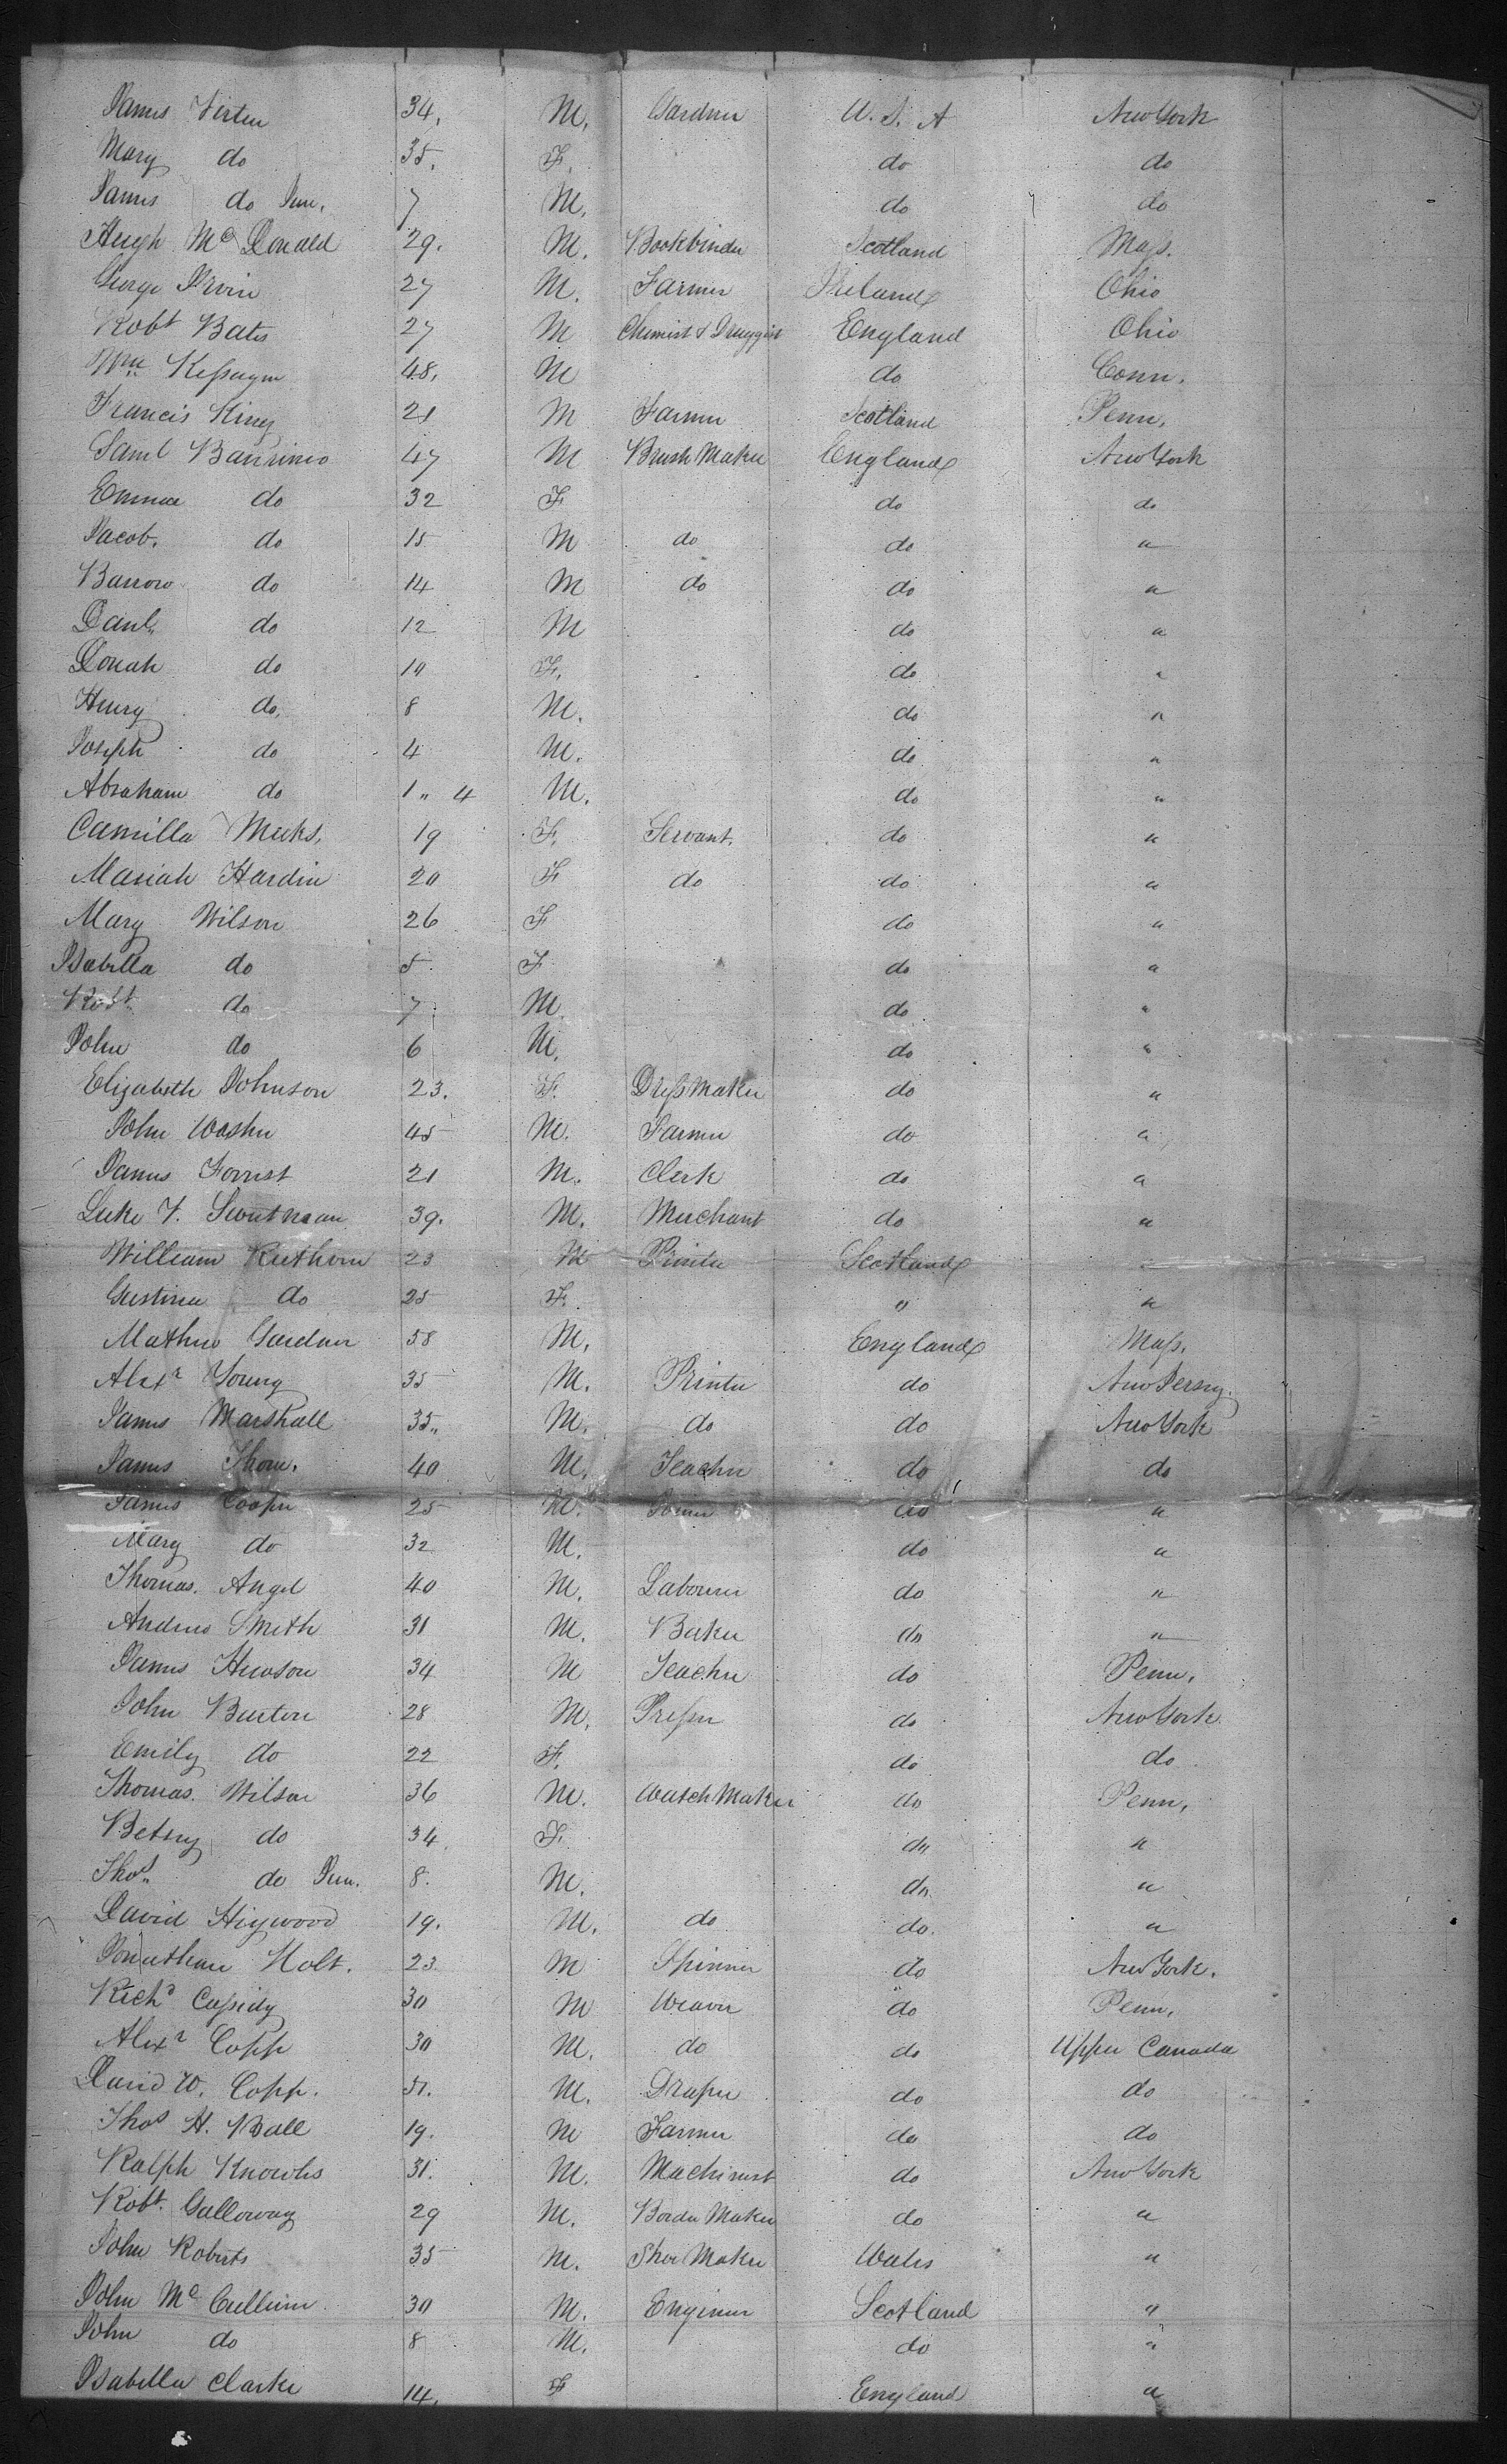 James 34. M. Gardner U. S. A New York
Mary do 35. F. do do
James do Jun. 7 M. do do
Hugh McDonald 29. M. Bookbinder Scotland Mass.
George Irvin 27 M. Farmer Ireland Ohio
Robt Bates 27 M Chemist & Druggist England Ohio
Wm 48. M do Conn.
Francis King 21 M Farmer Scotland Penn.
Saml 47 M Brush Maker England New York
Emma do 32 F do do
Jacob. do 15 M do do "
Barrow do 14 M do do "
Danl. do 12 M do "
do 10 F. do "
Henry do. 8 M. do "
Joseph do 4 M. do "
Abraham do 1 " 4 M. do "
Camilla Meeks. 19 F. Servant. do "
Mariah Hardin 20 F do do "
Mary Wilson 26 F do "
Isabella do 5 F do "
Robt. do 7 M. do "
John do 6 M. do "
Elizabeth Johnson 23. F. Dress Maker do "
John 45 M. Farmer do "
James Forrest 21 M. Clerk do "
Luke 39. M. Merchant do "
William 23 M Printer Scotland "
do 25 F. " "
Mathew Gardner 58 M. England Mass.
Alexr Young 35 M. Printer do New Jersey.
James Marshall 35 " M. do do New York
James Thom. 40 M. Teacher do do
James Cooper 25 M. Joiner do "
Mary do 32 M. do "
Thomas. Angel 40 M. Labourer do "
Andrew Smith 31 M. Baker do "
James Hewson 34 M Teacher do Penn.
John Burton 28 M. Presser do New York
Emily do 22 F. do do
Thomas. Wilson 36 M. Watch Maker do Penn.
Betsey do 34 F. do "
Thos. do Jun. 8. M. do "
David 19. M. do do. "
Jonathan Holt. 23 M Spinner do New York.
Richd Cassidy 30 M Weaver do Penn.
Alexr Copp 30 M. do do Upper Canada
David W. Copp. 51. M. Draper do do
Thos H. Ball 19. M Farmer do do
Ralph Knowles 31. M. Machinist do New York
Robt. Galloway 29 M. Maker do "
John Roberts 35 M. Shoe Maker Wales "
John McCullum 30 M. Enginer Scotland "
John do 8 M. do "
Isabella Clarke 14. F England "